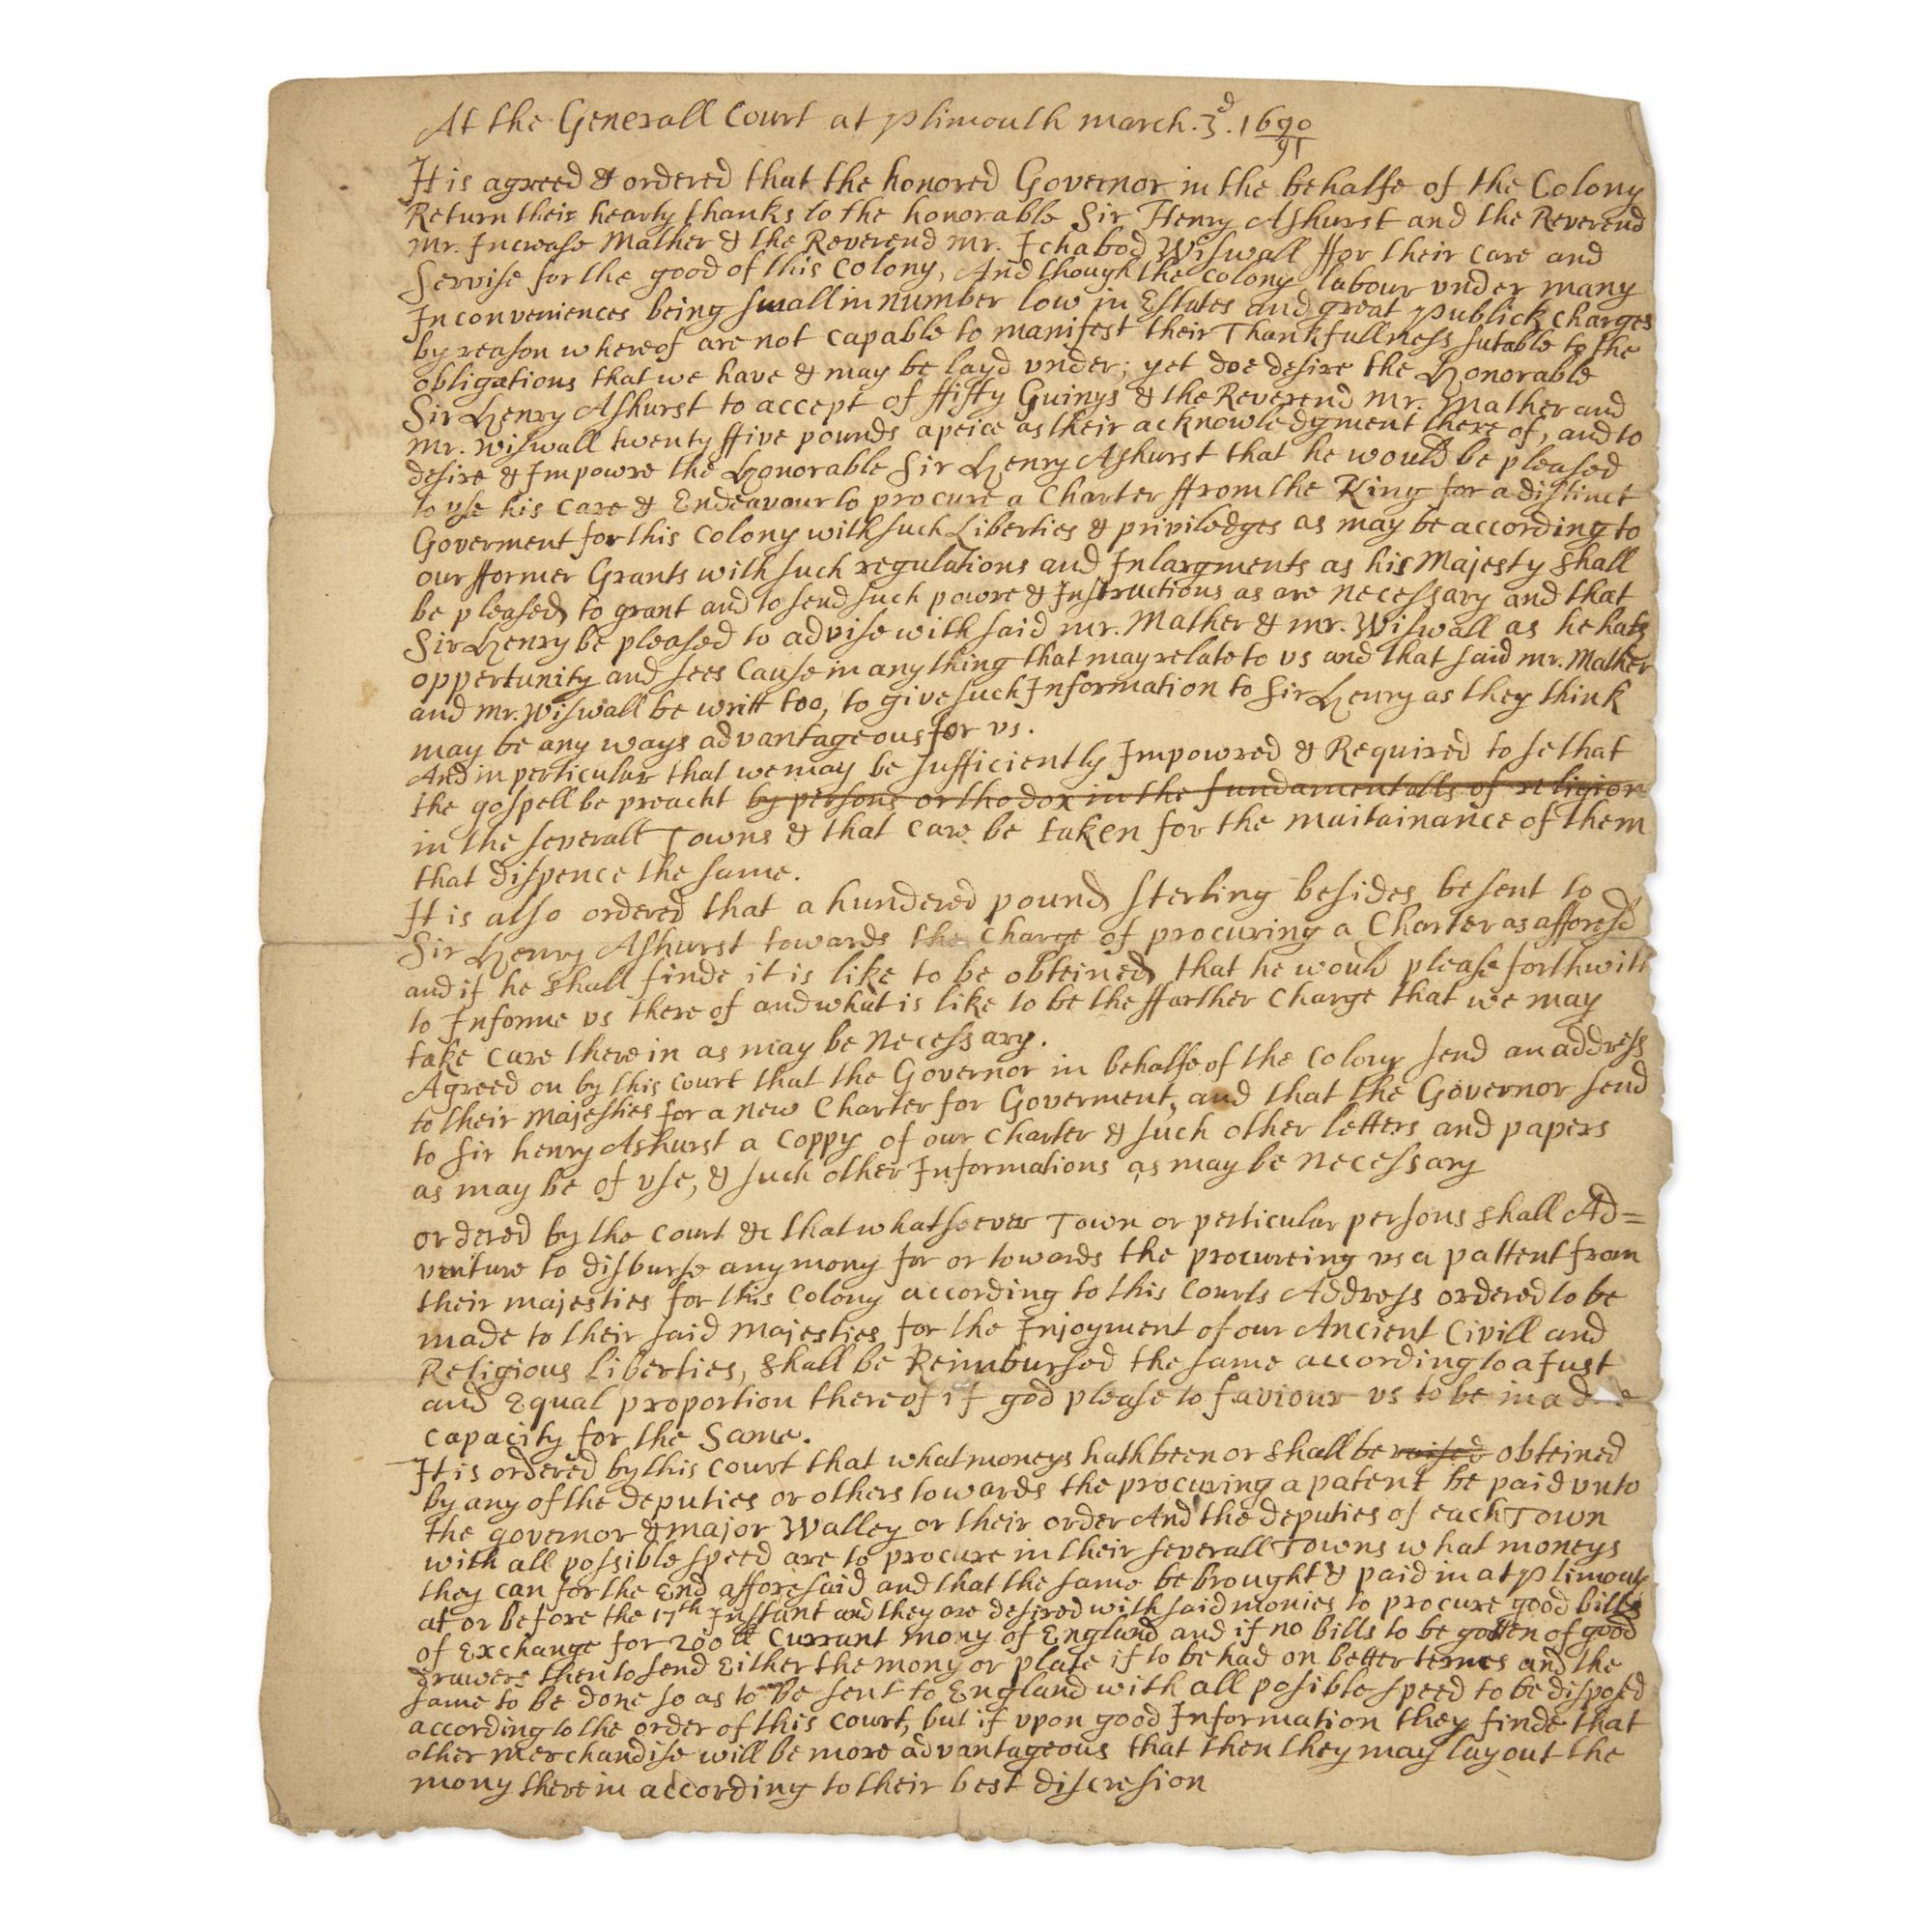 At the Generall Court at plimouth march.3d.1690/91
It is agreed & ordered that the honored Governor in the behalfe of the Colony
Return their hearty thanks to the honorable Sir Henry Ashurst and the Reverend
mr. Increase Mather & the Reverend mr. Ichabod Wiswall ffor their care and
Servise for the good of this Colony, And though the Colony labour vnder many
Inconveniences being small in number low in Estates and great publick charges
by reason whereof are not capable to manifest their Thankfullness sutable to the
obligations that we have & may be layd vnder; yet doe desire the Honorable
Sir Henry Ashurst to accept of ffifty Guinys & the Reverend mr. Mather and
mr. Wiswall twenty ffive pounds apeice as their acknowledgment thereof, and to
desire & Impowre the Honorable Sir Henry Ashurst that he would be pleased
to vse his care & Endeavour to procure a Charter ffrom the King for a distinct
Goverment for this Colony with such Liberties & priviledges as may be according to
our fformer Grants with such regulations and Inlargments as his Majesty shall
be pleased to grant and to send such powre & Instructions as are necessary and that
Sir Henry be pleased to advise with said mr. Mather & mr. Wiswall as he hats
oppertunity and sees Cause in any thing that may relate to vs and that said mr. Mather
and mr. Wiswall be writt too, to give such Information to Sir Henry as they think
may be any ways advantageous for vs.
And in perticular that we may be sufficiently Impowred & Required to se that
the gospell be preacht by persons orthodox in the fundamentalls of religion
in the severall Towns & that care be taken for the maitainance of them
that dispence the same.
It is also ordered that a hundered pound sterling besides be sent to
Sir Henry Ashurst towards the Charge of procuring a Charter as afforesd
and if he shall finde it is like to be obteined that he would please forthwith
to Informe vs there of and what is like to be the ffarther Charge that we may
take care therein as may be necessary.
Agreed on by this Court that the Governor in behalfe of the Colony send an address
to their majesties for a new Charter for Goverment, and that the Governor send
to Sir henry Ashurst a Coppy of our Charter & such other letters and papers
as may be of vse, & such other Informations as may be necessary
ordered by the Court &c that whatsoever Town or perticular persons shall Ad=
venture to disburse any mony for or towards the procureing vs a pattent from
their majesties for this Colony according to this Courts Address ordered to be
made to their said Majesties for the Injoyment of our Ancient Civill and
Religious liberties, shall be Reimbursed the same according to a Just
and Equal proportion thereof if god please to faviour vs to be in a due
capacity for the Same.
It is ordered by this Court that what moneys hath been or shall be raised obteined
by any of the deputies or others towards the procuring a patent be paid vnto
the governor & major Walley or their order And the deputies of each Town
with all possible speed are to procure in their severall Towns what moneys
they can for the End afforesaid and that the same be brought & paid in at plimouth
at or before the 17th Instant and they are desired with said monies to procure good bills
of Exchange for 200 ll Currant mony of England and if no bills to be gotten of good
drawers then to send Either the mony or plate if to be had on better termes and the
same to be done so as to be sent to England with all posible speed to be disposed
according to the order of this Court, but if vpon good Information they finde that
other merchandise will be more advantageous that then they may lay out the
mony therein according to their best discresion